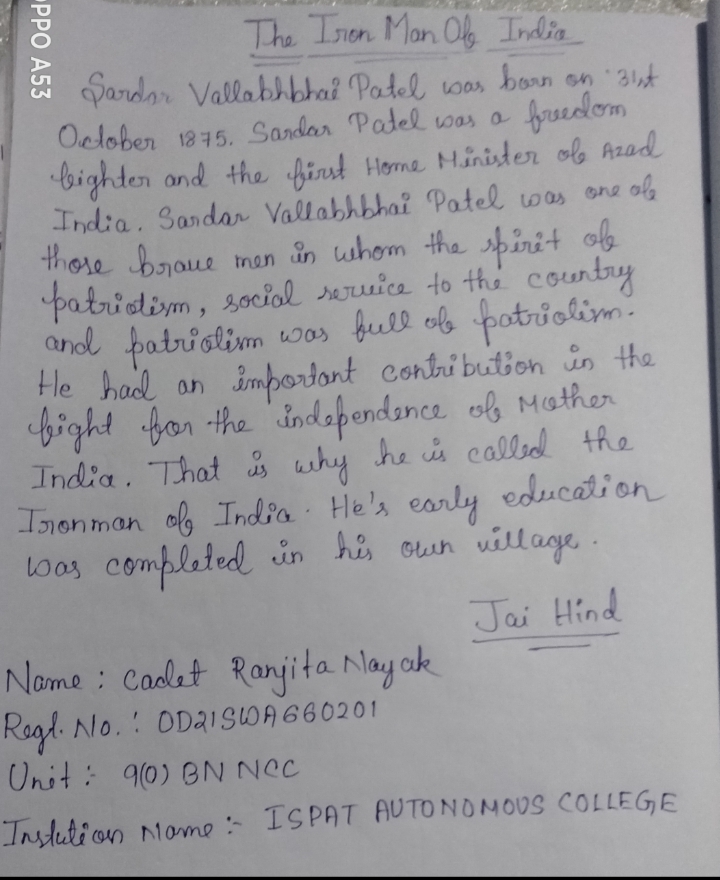 OPPO A53
The Iron Man Of India
Sardar Vallabhbhai Patel was born on 31st
October 1875. Sardar Patel was a freedom
fighter and the first Home Minister of Azad
India. Sardar Vallabhbhai Patel was one of
those brave men in whom the spirit of
patriotism, social service to the country
and patriotism was full of patriotism.
He had an important contribution in the
fight for the independence of Mother
India. That is why he is called the
Ironman of India. He's early education
was completed in his own village.
Jai Hind
Name : Cadet Ranjita Nayak
Regl. No. : OD21SWA660201
Unit :- 9(O) BN NCC
Instution Name :- ISPAT AUTONOMOUS COLLEGE